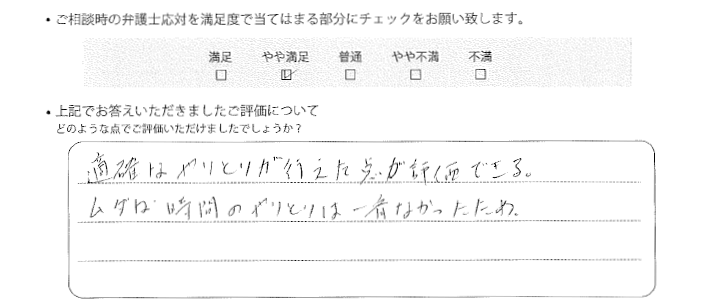 ・ご相談時の弁護士応対を満足度で当てはまる部分にチェックをお願い致します。
満足 やや満足 普通 やや不満 不満
□ ☑ □ □ □
・上記でお答えいただきましたご評価について
どのような点でご評価いただけましたでしょうか？
適確なやりとりが行えた点が評価できる。
ムダな時間のやりとりは一番なかったため。